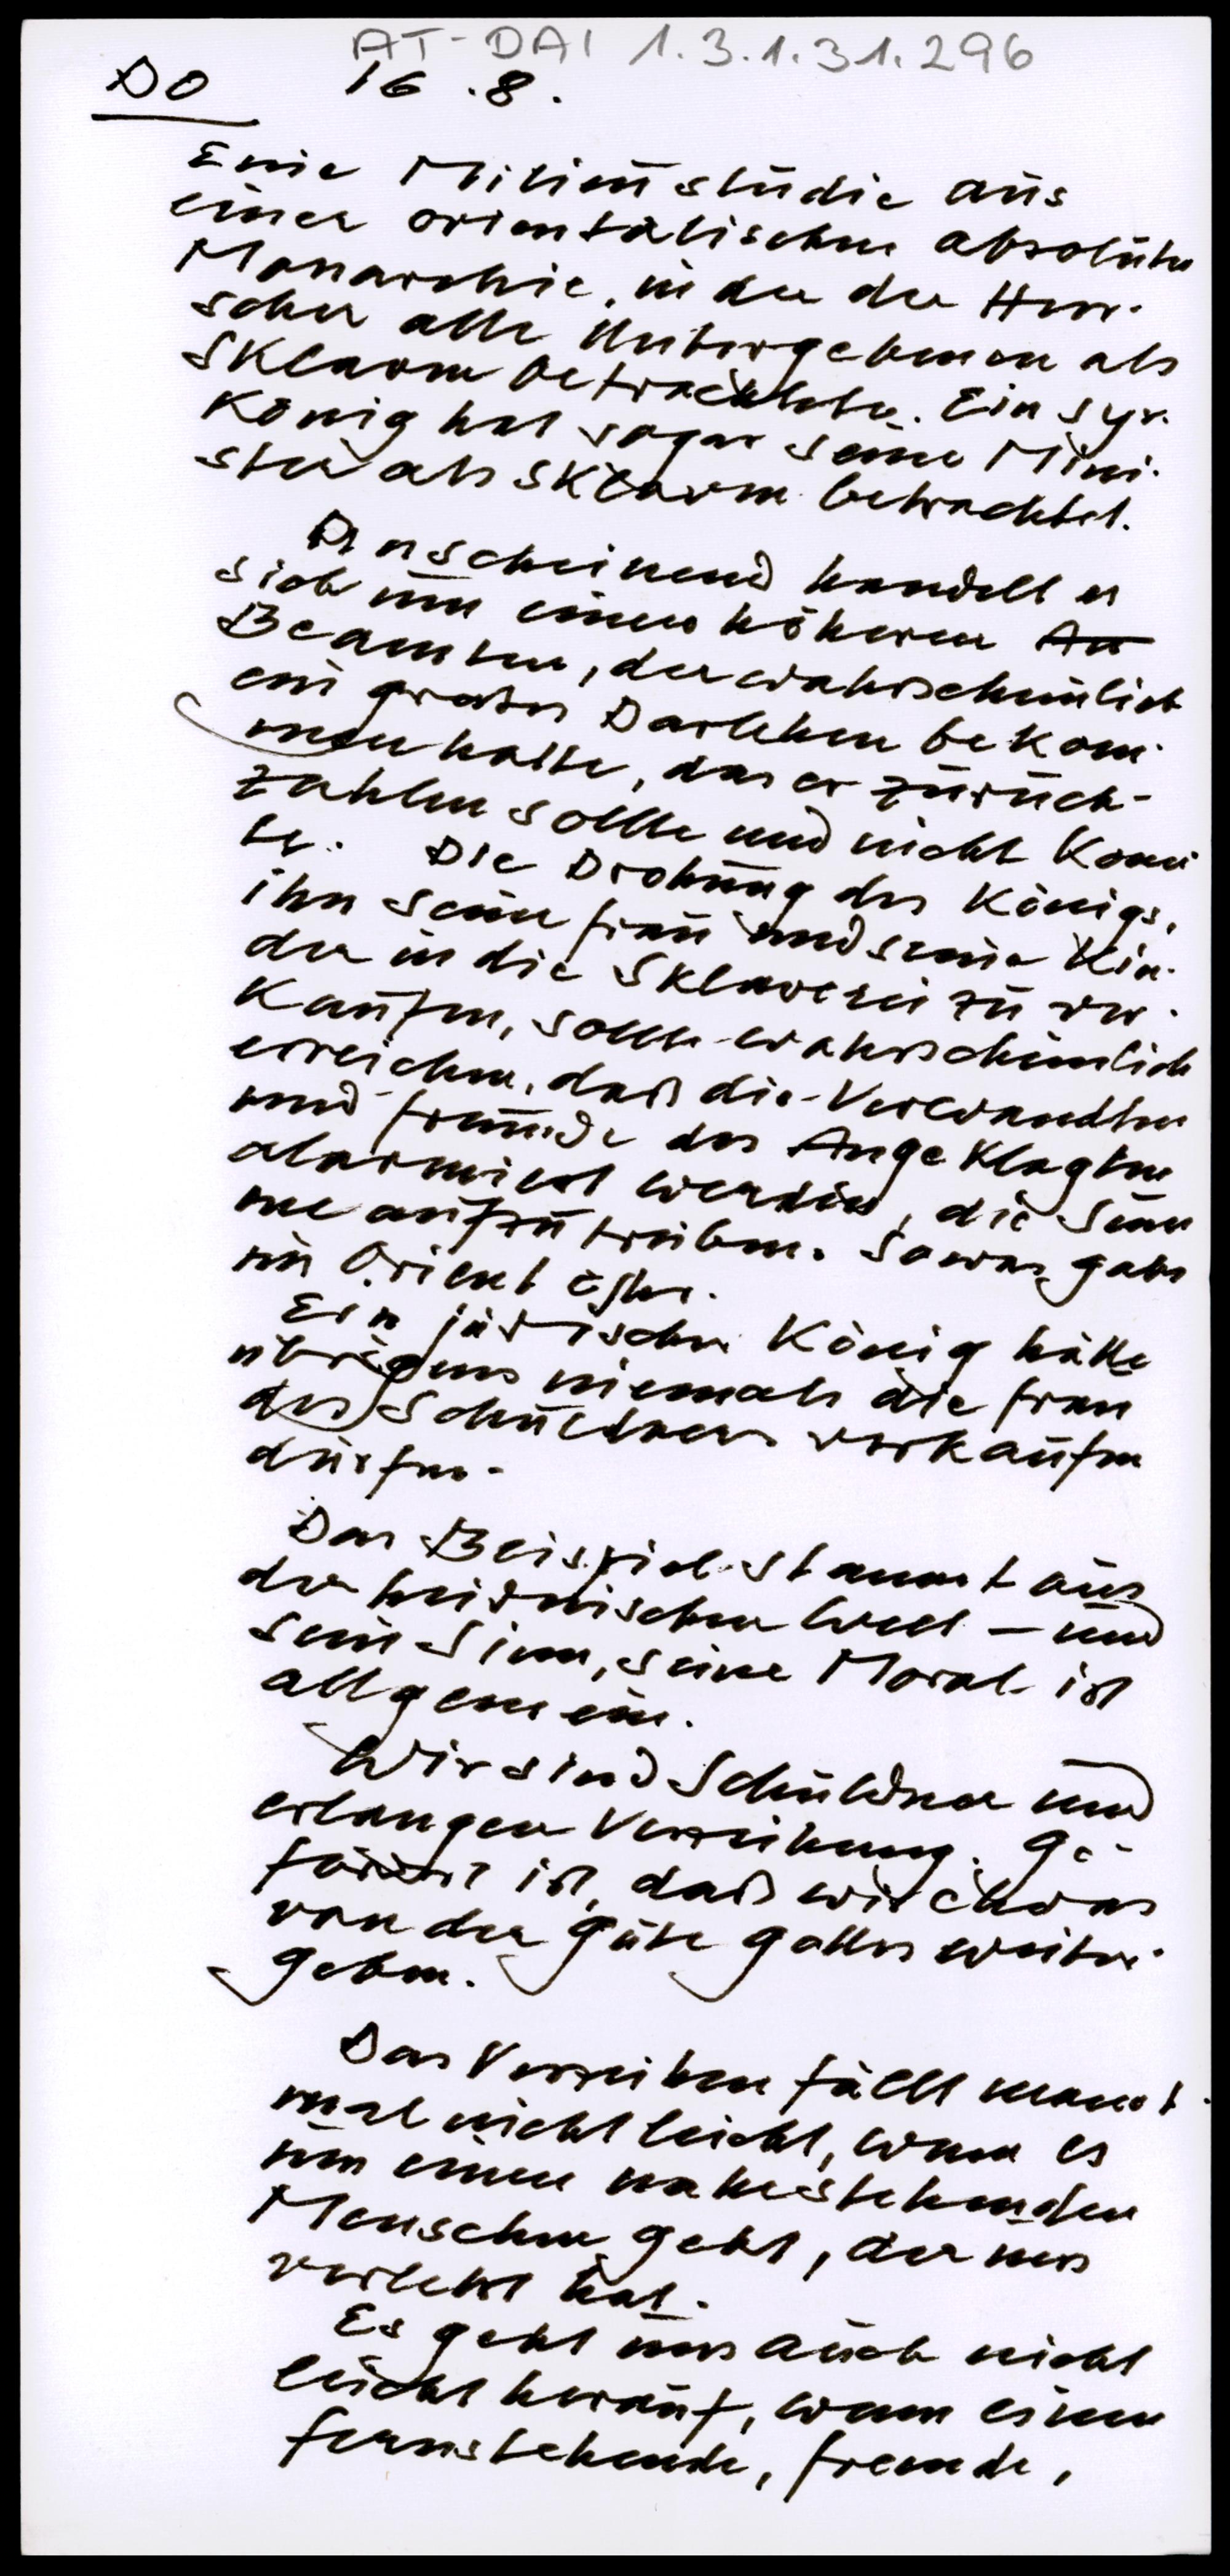 AT-DAI 1.3.1.31.296
DO 16.8.
Eine Milieustudie aus
einer orientalischen absoluten
Monarchie, in der der Herr-
scher alle Untergebenen als
Sklaven betrachtete. Ein syr.
König hat sogar seine Mini-
ster als Sklaven betrachtet.
Anscheinend handelt es
sich um einen höheren An
Beamten, der wahrscheinlich
ein großes Darlehen bekom-
men hatte, das er zurück-
zahlen sollte und nicht konn
te. Die Drohung des Königs,
ihn seine Frau und seine Kin-
der in die Sklaverei zu ver-
kaufen, sollte wahrscheinlich
erreichen, daß die Verwandten
und Freunde des Angeklagten
alarmiert werden, die Sum
me aufzutreiben. Sowas gabs
im Orient öfter.
Ein jüdischer König hätte
übrigens niemals die Frau
des Schuldners verkaufen
dürfen.
Das Beispiel stammt aus
der heidnischen Welt - und
sein Sinn, seine Moral ist
allgemein.
Wir sind Schuldner und
erlangen Verzeihung. Ge-
fordert ist, daß wir etwas
von der Güte Gottes weiter-
geben.
Das Verzeihen fällt manch-
mal nicht leicht, wenn es
um einen nahestehenden
Menschen geht, der uns
verletzt hat.
Es geht uns auch nicht
leicht herauf, wenn einen
fernstehende, fremde,